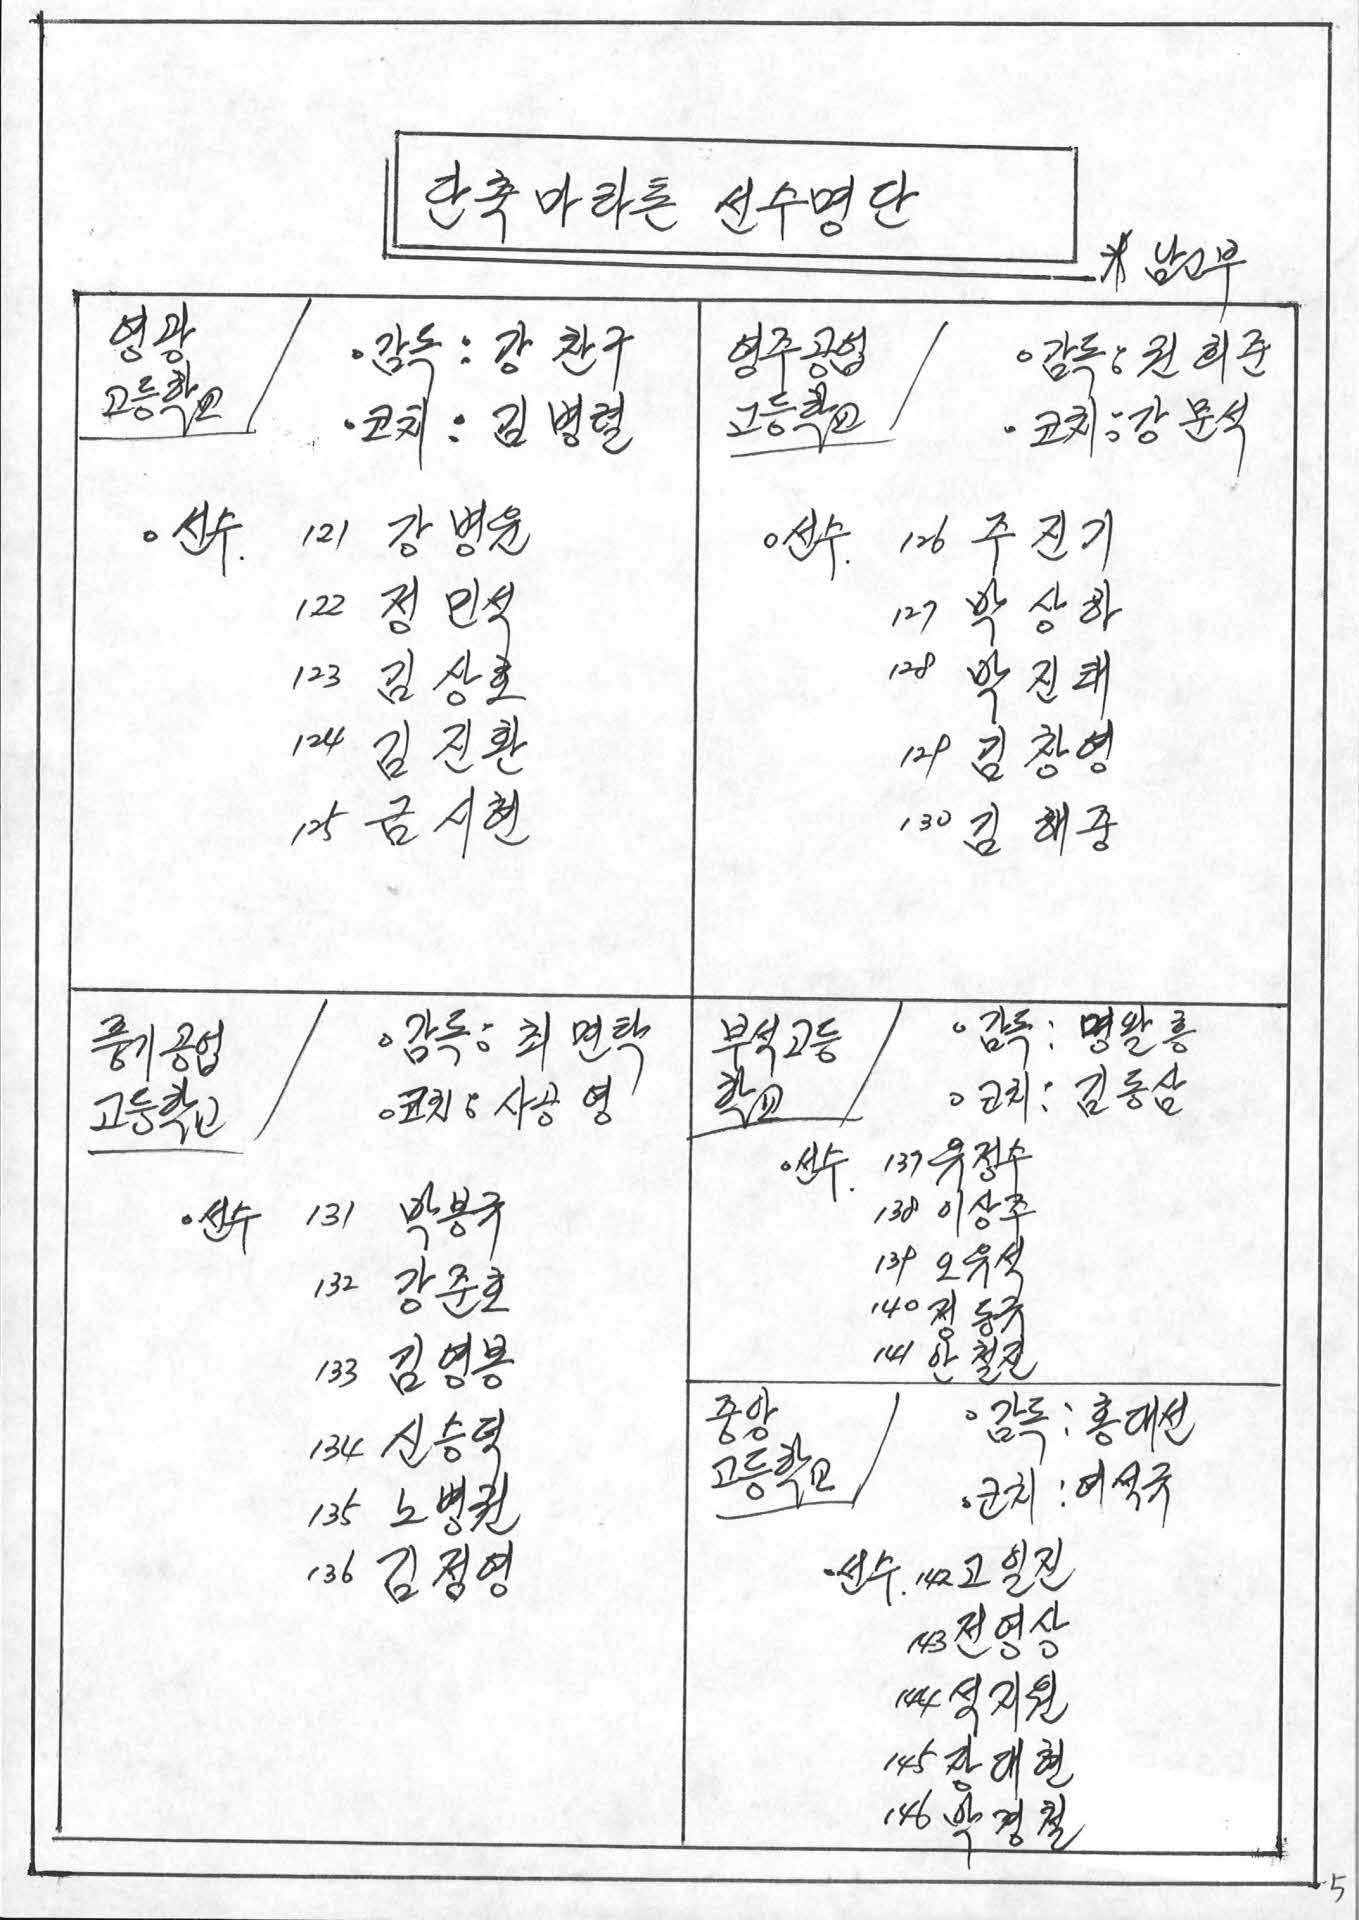 단축마라톤 선수명단
* 남고부
영광
고등학교
• 감독 : 강찬구
• 코치 : 김병렬
• 선수. 121 강병윤
122 정민석
123 김상호
124 김진환
125 금시현
영주공업
고등학교
• 감독 : 권희준
• 코치 : 강문석
• 선수. 126 주진기
127 박상하
128 박진태
129 김창영
130 김해중
풍기공업
고등학교
• 감독 : 최면탁
• 코치 : 사공영
• 선수 131 박봉국
132 강준호
133 김영봉
134 신승덕
135 노병권
136 김정영
부석고등
학교
• 감독 : 명왈흥
• 코치 : 김동삼
• 선수. 137 우정수
138 이상주
139 오유석
140 정동국
141 안철진
중앙
고등학교
• 감독 : 홍대선
• 코치 : 여석국
• 선수. 142 고일진
143 전영상
144 석지원
145 장대현
146 박경철
5